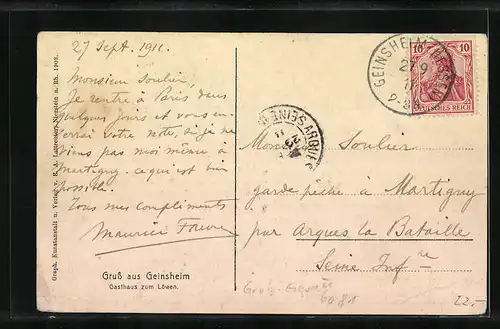 27 Sept. 1911.
Monsieur Soulier,
Je rentre à Paris dans
quelques jours et vous en-
verrai votre note, si je ne
viens pas moi même à
Martigny ce qui est bien
possible.
Tous mes compliments
Maurice Favre
Gruß aus Geinsheim
Gasthaus zum Löwen.
Graph. Kunstanstalt u. Verlag v.
Nierstein a. Rh. 1908.
GEINSHEIM (HESSEN)
27 9
11
10 10
DEUTSCHES REICH
Monsieur Soulier
garde pêche à Martigny
par Arques la Bataille
Seine Infre
Groß-Gerau
6081
22.-